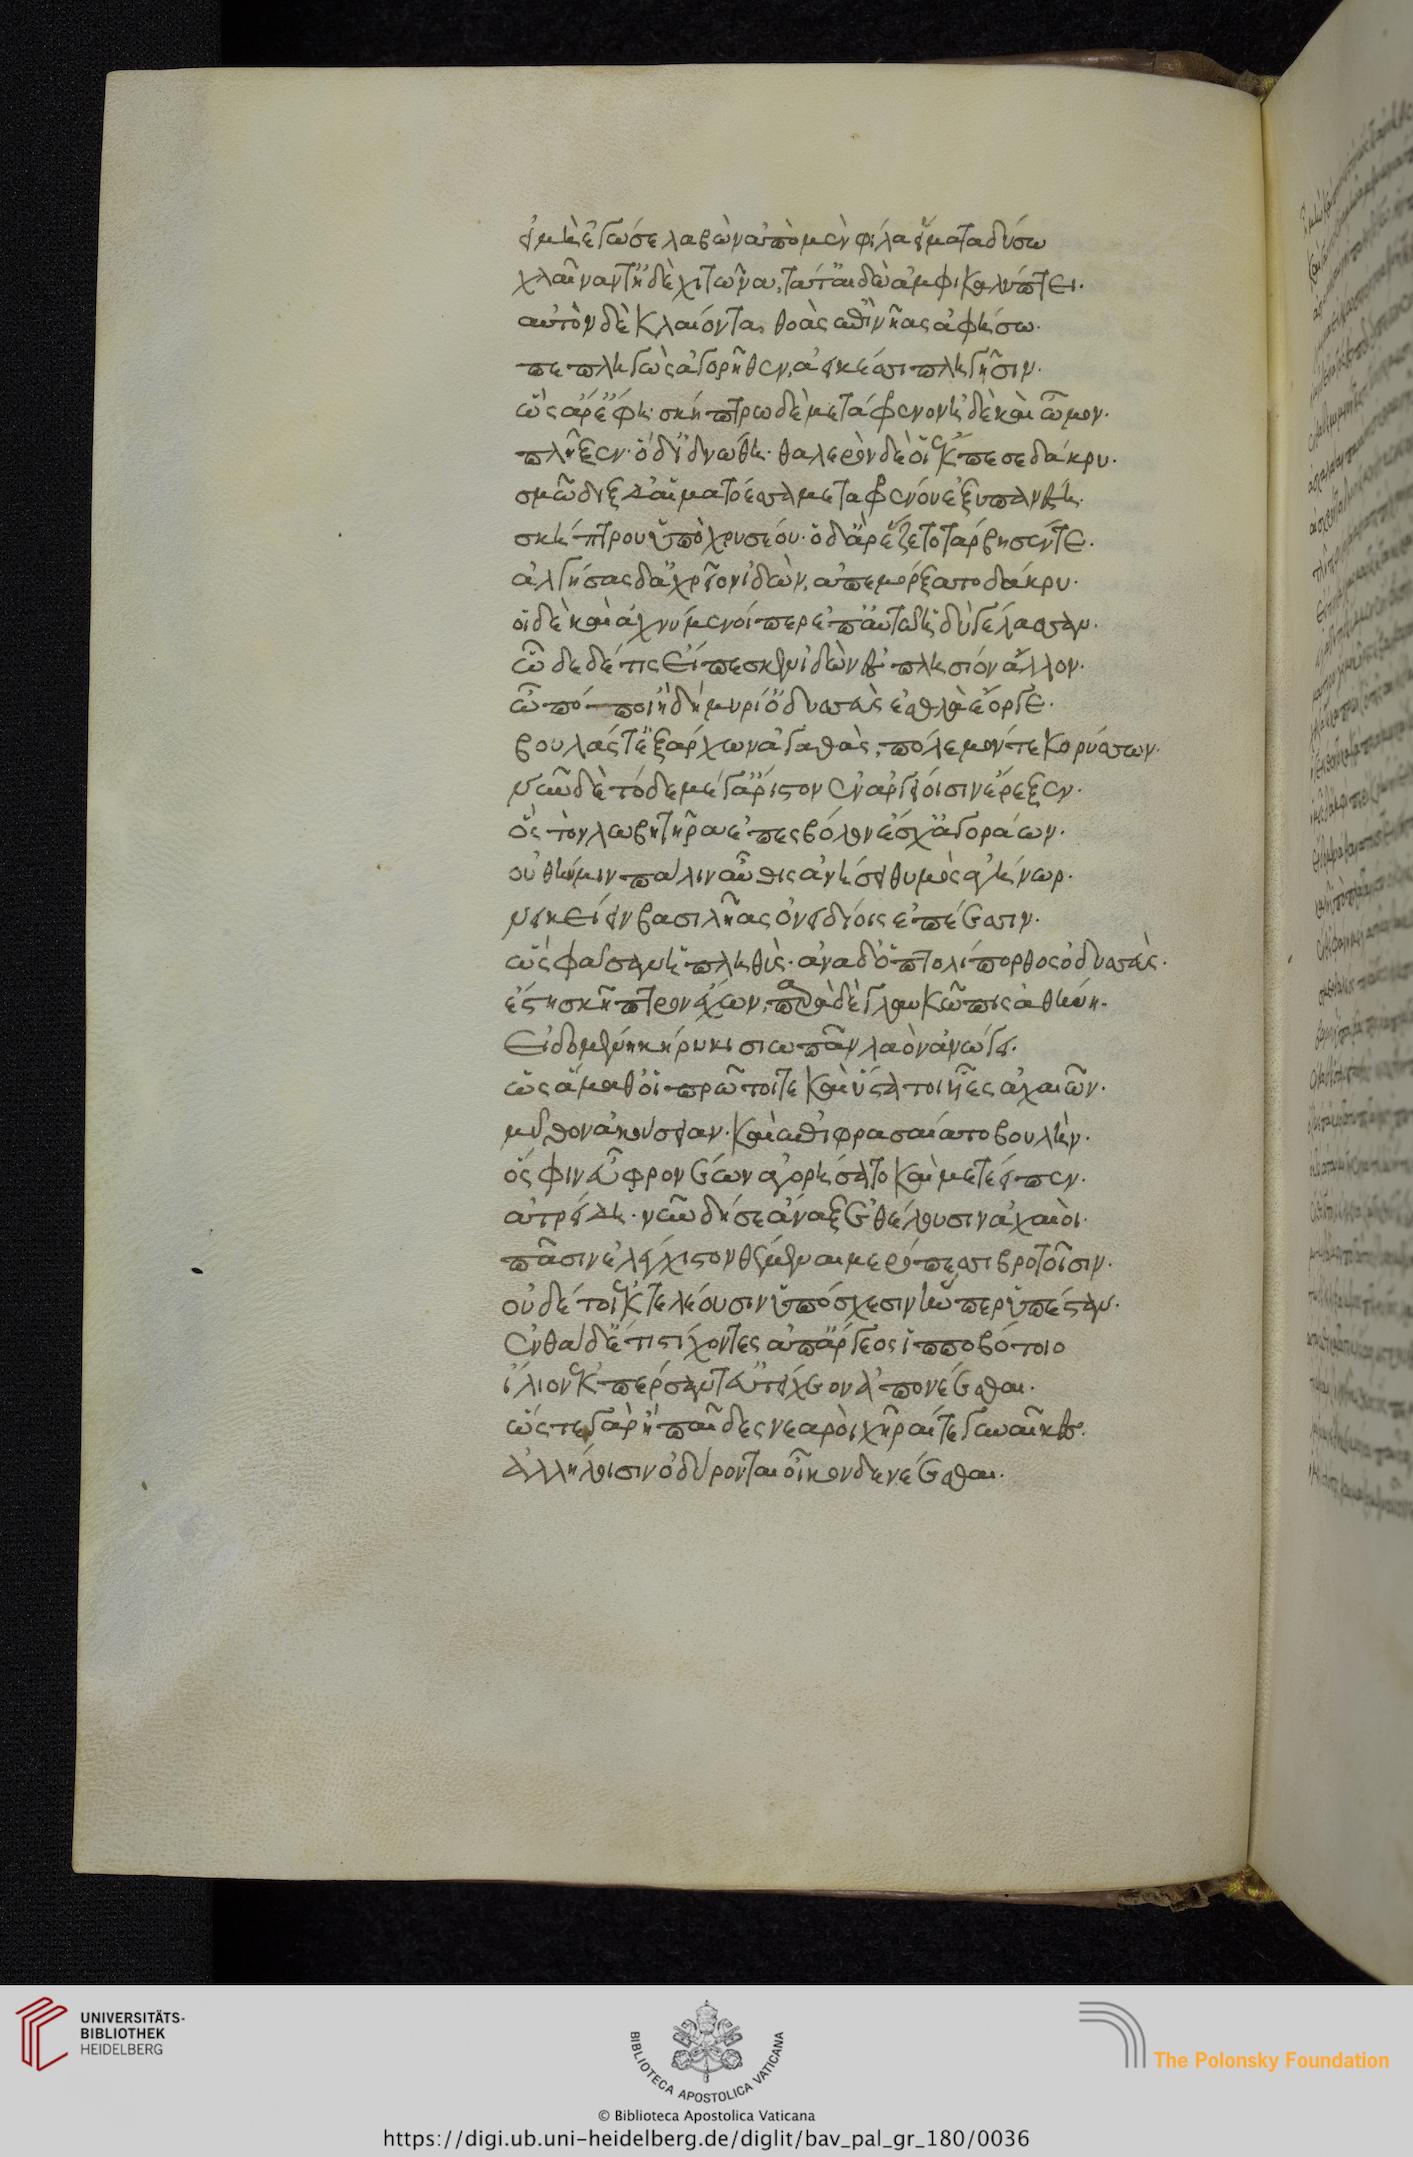 εἰ μὴ ἐγώ σε λαβὼν ἀπὸ μὲν φίλα εἵματα δύσω
χλαῖναν τ' ἠδὲ χιτῶνα, τά τ' αἰδῶ ἀμφικαλύπτει.
αὐτὸν δὲ κλαίοντα θοὰς ἐπὶ νῆας ἀφήσω.
πεπληγὼς ἀγορῆθεν, ἀεικέσι πληγῇσιν.
ὣς ἄρ' ἔφη· σκήπτρῳ δὲ μετάφρενον ἠδὲ καὶ ὤμω.
πλῆξεν· ὁ δ' ἰδνώθη· θαλερὸν δέ οἱ ἔκπεσε δάκρυ.
σμῶδιξ δ' αἱματόεσσα μεταφρένου ἐξυπανέστη.
σκήπτρου ὑπὸ χρυσέου· ὁ δ' ἄρ' ἕζετο τάρβησέν τε.
ἀλγήσας δ' ἀχρεῖον ἰδὼν, ἀπεμόρξατο δάκρυ.
οἱ δὲ καὶ ἀχνύμενοί περ ἐπ' αὐτῷ ἡδὺ γέλασσαν.
ὧδε δέ τις εἴπεσκεν ἰδὼν ἐς πλησίον ἄλλον.
ὢ πόποι ἦ δὴ μυρί' ὀδυσσεὺς ἐσθλὰ ἔοργε.
βουλάς τ' ἐξάρχων ἀγαθὰς, πόλεμόν τε κορύσσων.
νῦν δὲ τόδε μέγ' ἄριστον ἐν ἀργείοισιν ἔρεξεν.
ὃς τὸν λωβητῆρα ἐπεσβόλον ἔσχ' ἀγοράων.
οὔ θην μιν πάλιν αὖθις ἀνήσει θυμὸς ἀγήνωρ.
νεικείειν βασιλῆας ὀνειδείοις ἐπέεσσιν.
ὣς φάσαν ἡ πληθύς· ἀνὰ δ' ὁ πτολίπορθος ὀδυσσεὺς.
ἔστη σκῆπτρον ἔχων, παρὰ δὲ γλαυκῶπις ἀθήνη.
εἰδομένη κήρυκι σιωπᾶν λαὸν ἀνώγει.
ὡς ἅμα θ' οἱ πρῶτοί τε καὶ ὕστατοι υἷες ἀχαιῶν.
μῦθον ἀκούσειαν· καὶ ἐπιφρασαίατο βουλήν.
ὅς φιν ἐυφρονέων ἀγορήσατο καὶ μετέειπεν.
ἀτρείδη· νῦν δή σε ἄναξ ἐθέλουσιν ἀχαιοὶ.
πᾶσιν ἐλέγχιστον θέμεναι μερόπεσσι βροτοῖσιν.
οὐδέ τοι ἐκτελέουσιν ὑπόσχεσιν ἥν περ ὑπέσταν.
ἐνθάδ' ἔτι στείχοντες ἀπ' ἄργεος ἱπποβότοιο
ἴλιον ἐκπέρσαντ' εὐτείχεον ἀπονέεσθαι.
ὥς τε γὰρ ἢ παῖδες νεαροὶ χῆραί τε γυναῖκες.
ἀλλήλοισιν ὀδύρονται οἶκον δὲ νέεσθαι.
UNIVERSITÄTS-
BIBLIOTHEK
HEIDELBERG
BIBLIOTECA APOSTOLICA VATICANA
The Polonsky Foundation
© Biblioteca Apostolica Vaticana
https://digi.ub.uni-heidelberg.de/diglit/bav_pal_gr_180/0036